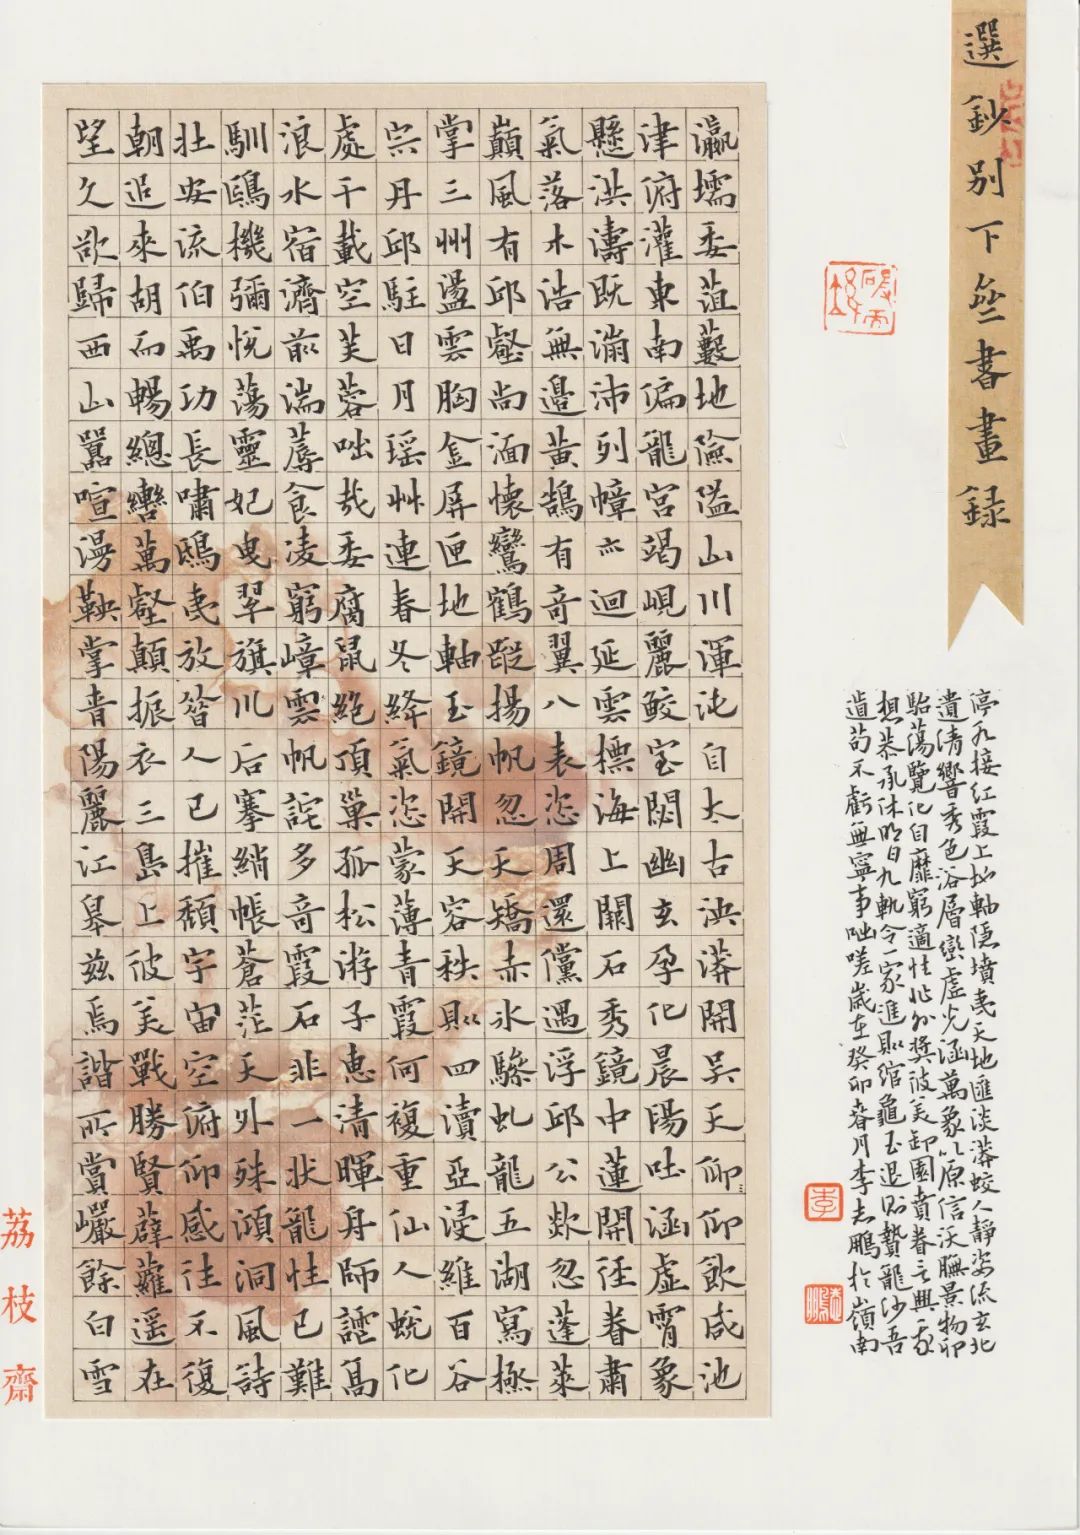 選鈔別下亝書畫録
瀛壖委菹藪地險隘山川渾沌自太古泱漭開吳天仰仰飲咸池
津俯灌東南偏龍宮竭峴麗鮫宝閟幽玄孕化晨陽吐涵虛霄象
懸洪濤既滿沛列幛亦迴延雲標海上關石秀鏡中蓮開徑眷肅
氣落木浩無邊黃鵠有奇翼八表恣周還儻遇浮邱公欻忽蓬萊
巔風有邱壑尚湎懷鸞鶴蹤揚帆忽天矯赤水驂虬龍五湖寫極
掌三州盪雲胸金屏匣地軸玉鏡開天容秩則四瀆亞浸維百谷
崇丹邱駐日月瑶艸連春冬絳氣恣蒙薄青霞何複重仙人蛻化
處千載空芙蓉咄哉委腐鼠絕頂巢孤松游子惠清暉舟師謔篙
浪水宿濟前湍蓐食凌窮嶂雲帆詫多奇霞石非一狀龍性已難
馴鷗機彌悅蕩靈妃曳翠旗川后搴綃帳蒼茫天外殊澒洞風詩
壯安流伯禹功長嘯鴟夷放昝人已摧頹宇宙空俯仰感往不復
朝追來胡而暢總轡萬壑顛振衣三島上彼美戰勝賢薜蘿遥在
望久欲歸西山囂喧漫鞅掌青陽麗江皋兹焉諧所賞巖餘白雪
停九接紅霞上地軸隱墳夷天地匯淡漭蛟人靜姿流玄北
遺清響秀色浴層巒虛光涵萬象以原信沃膴景物卬
駘蕩覽化自靡窮適性非外奬彼美卸園賁眷言興
想恭承休明日九軌今一家進則綰龜玉退則贊龍沙吾
道苟不虧無寧事咄嗟歲在癸卯春月李志鵬於嶺南
李
荔枝齋